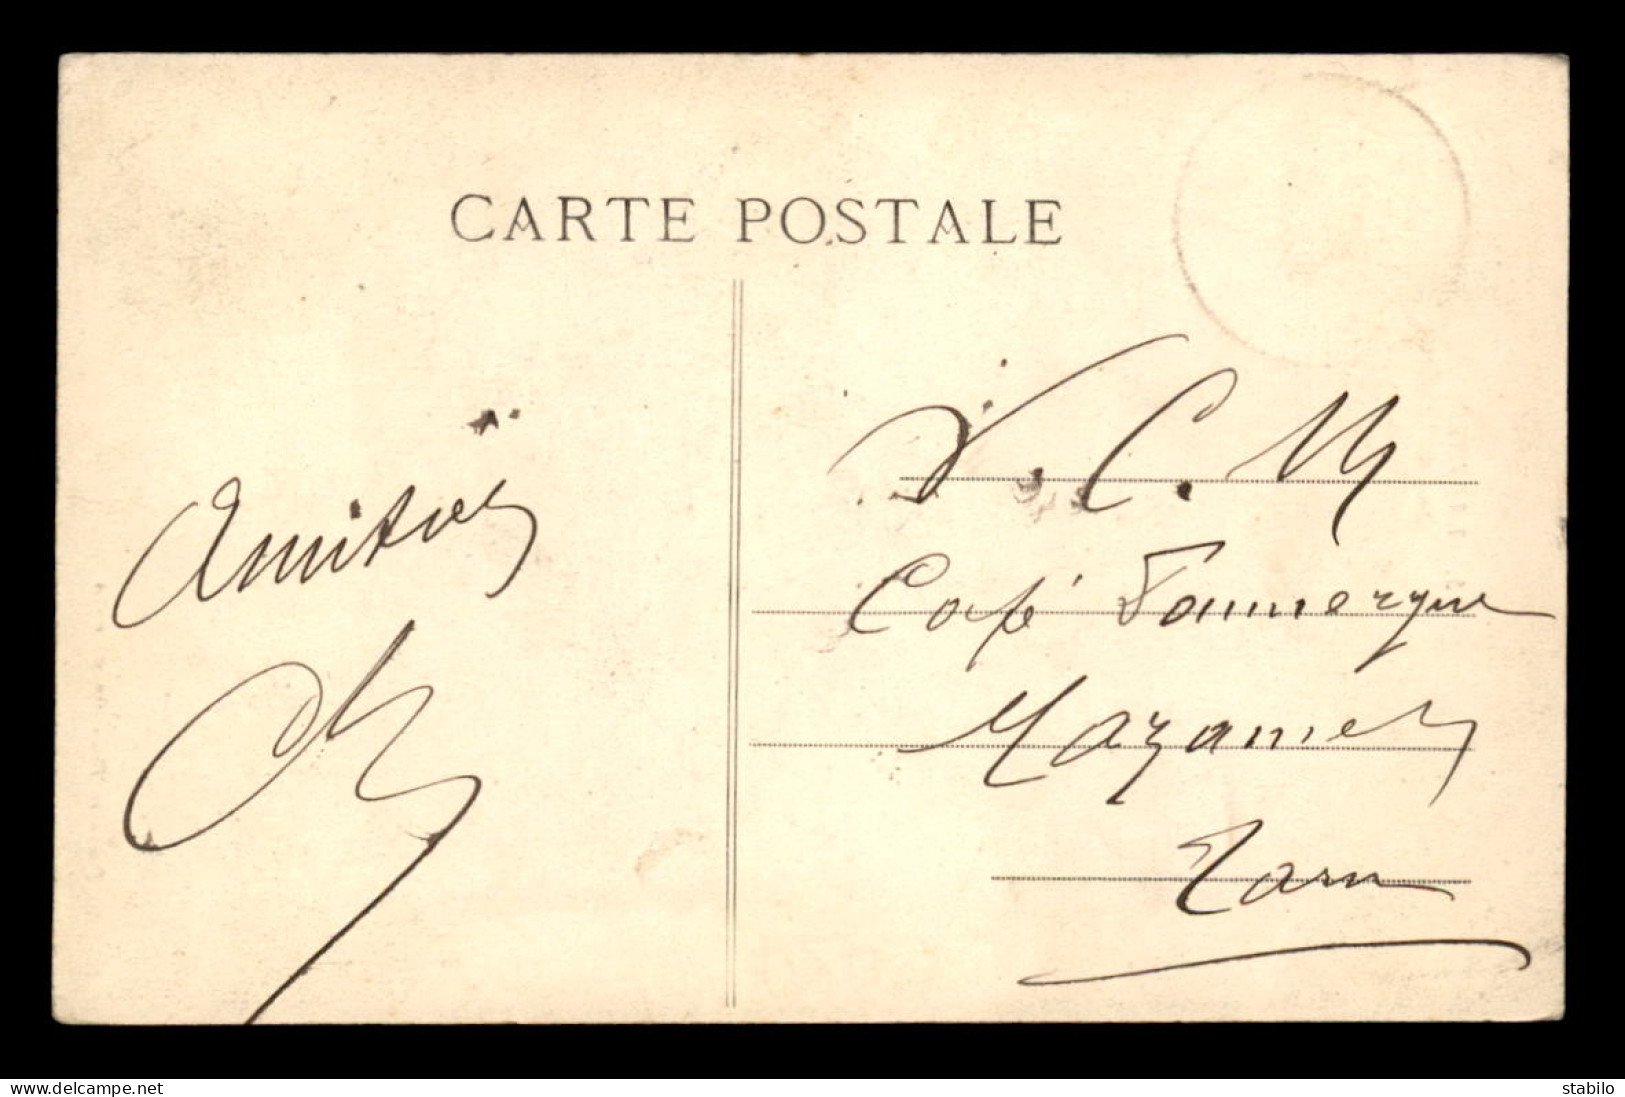 CARTE POSTALE
Amitiés
V. C. M
Café Fonmergue
Mazamet
Tarn
www.delcampe.net
stabilo